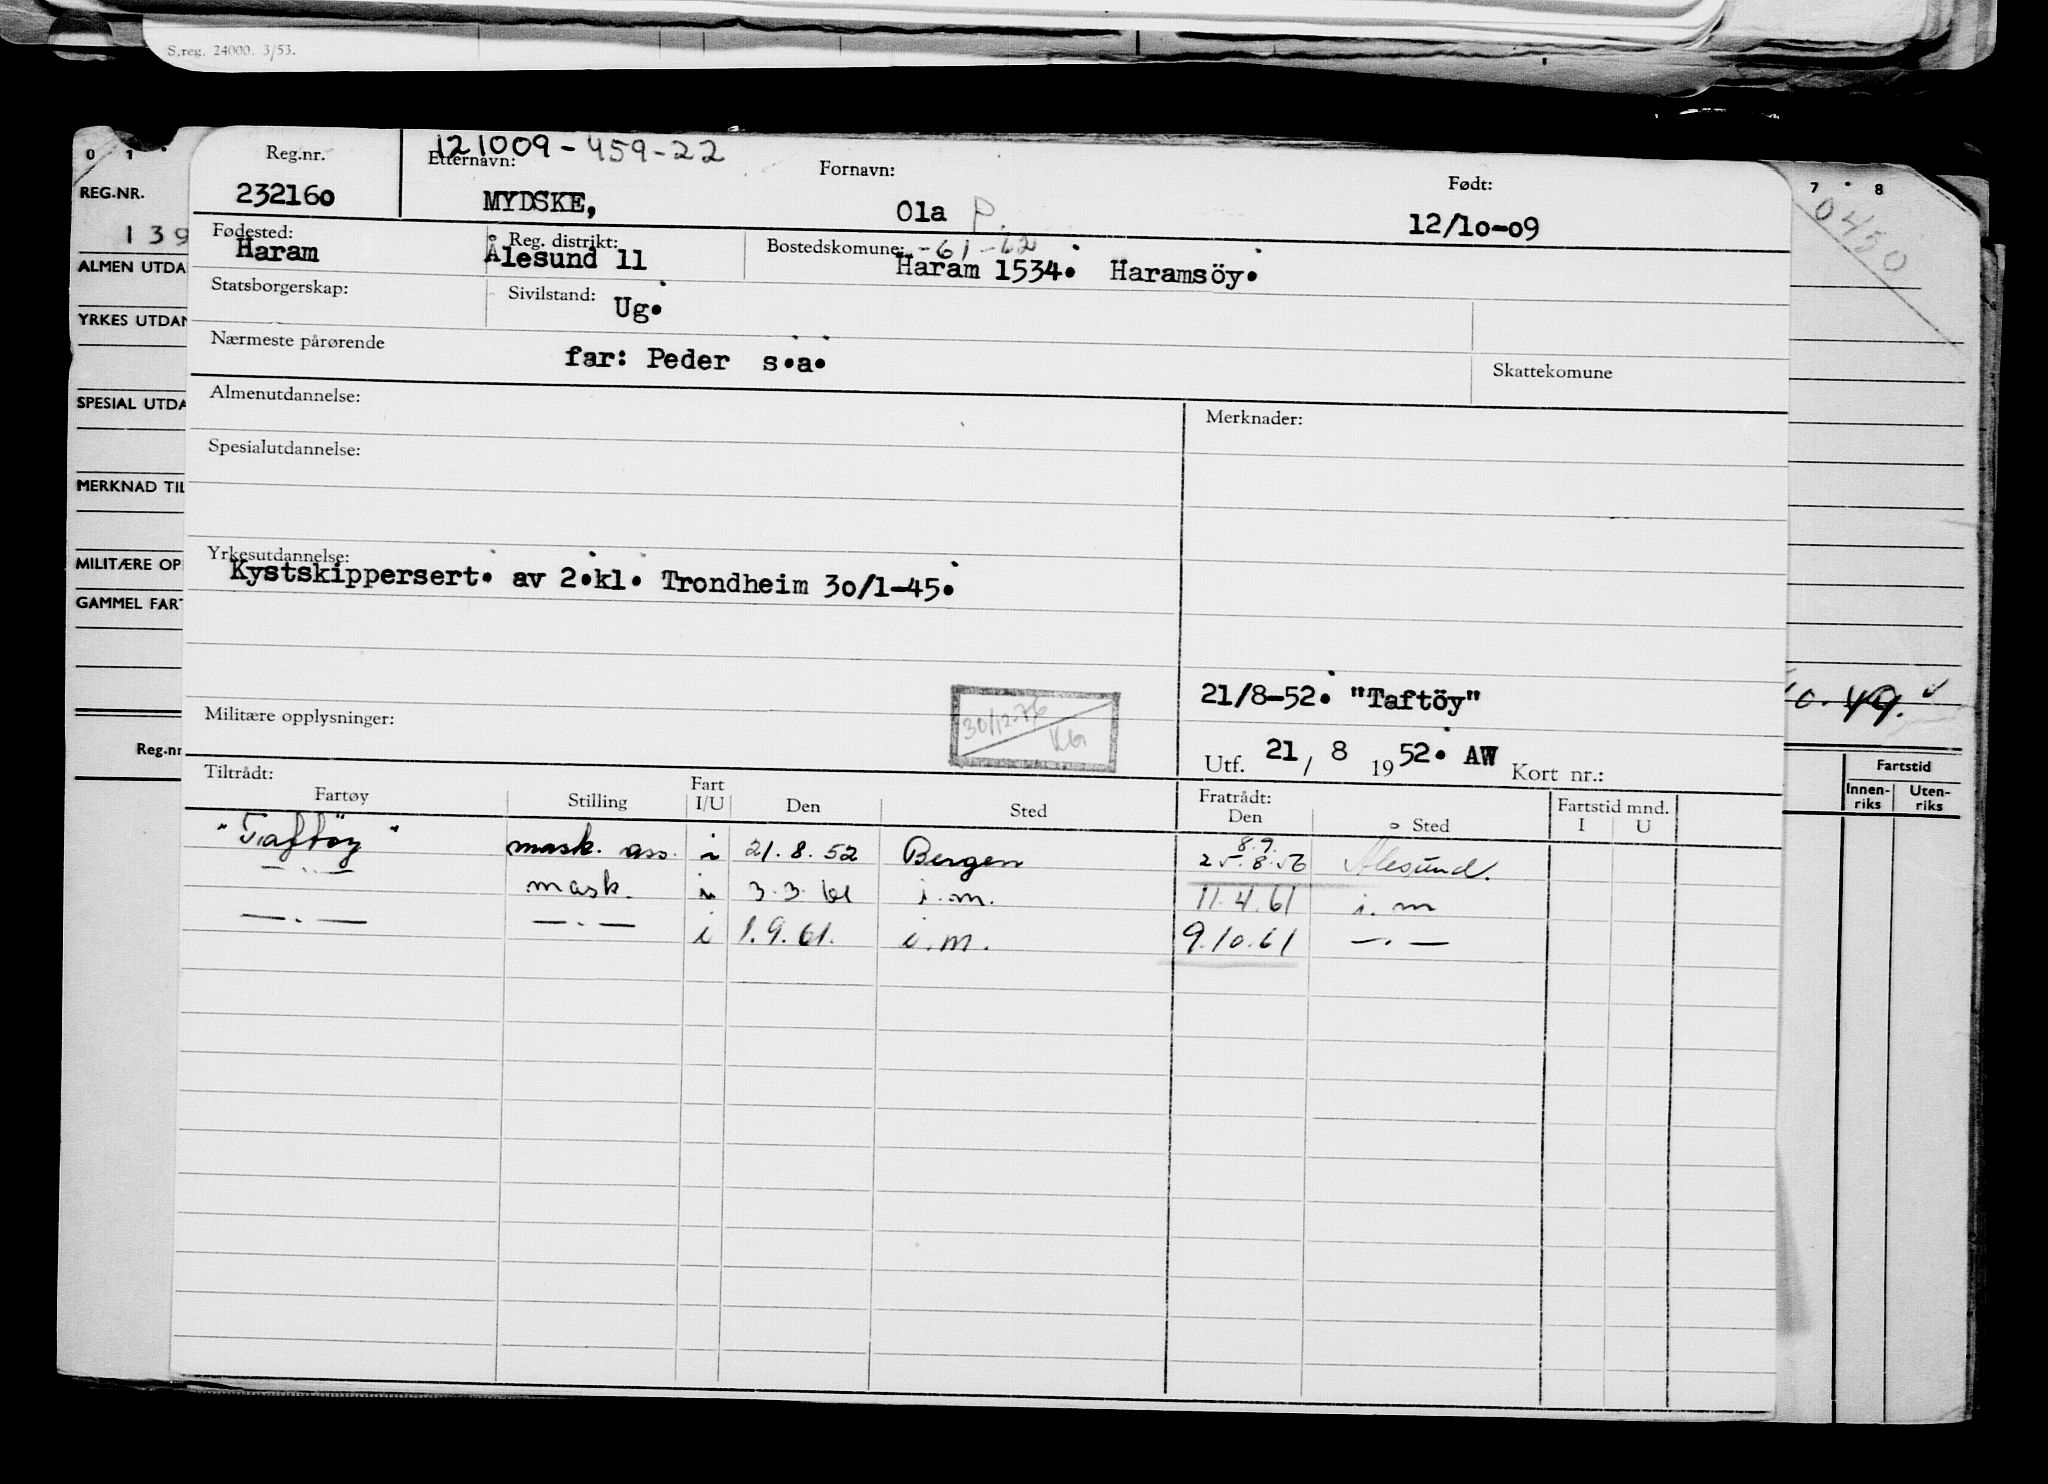 S.reg. 24000. 3/53.
0 1
REG.NR.
139
ALMEN UTDA
YRKES UTDAN
SPESIAL UTDA
MERKNAD TIL
MILITÆRE OP
GAMMEL FART
Reg.nr
121009-459-22
Reg.nr. Etternavn: Fornavn: Født:
232160 MYDSKE, Ola P. 12/10-09
Fødested: Reg. distrikt: Bostedskomune: -61-62
Haram Ålesund 11 Haram 1534. Haramsöy.
Statsborgerskap: Sivilstand: Ug.
Nærmeste pårørende far: Peder s.a. Skattekomune
Almenutdannelse: Merknader:
Spesialutdannelse:
Yrkesutdannelse:
Kystskippersert. av 2.kl. Trondheim 30/1-45.
21/8-52. "Taftöy"
Militære opplysninger: 30/12-76 KG
Utf. 21/8 1952. AW Kort nr.:
Tiltrådt: Fart Fratrådt: Fartstid mnd.
Fartøy Stilling I/U Den Sted Den Sted I U
8.9.
"Taftöy" mask. ass. i 21.8.52 Bergen 25.8.56 Ålesund.
— . — mask. i 3.3.61 i.m. 11.4.61 i.m
— . — — . — i 1.9.61. i.m. 9.10.61 — . —
7 8
0450
10.49.
Fartstid
Innen-riks Uten-riks